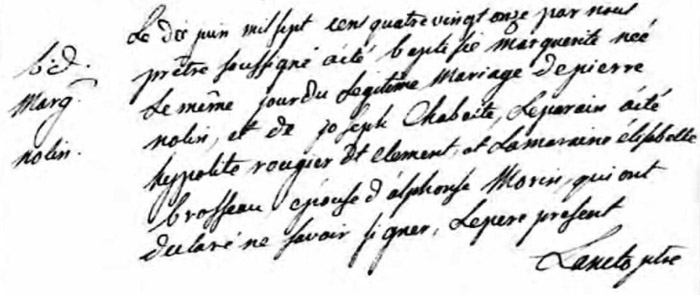 Le dix juin mil sept cens quatre vingt onze par nous
b: d. prêtre soussigné a été baptisée marguerite née
Marg. Le même jour du Legitême Mariage de pierre
nolin. nolin, et de joseph Chabaite, Leparain a été
hypolite rougier dt Clement, et Lamaraine élisabelle
brosseau épouse d'alphonse Morin, qui ont
declaré ne savoir signer, Lepere present
Lancto ptre